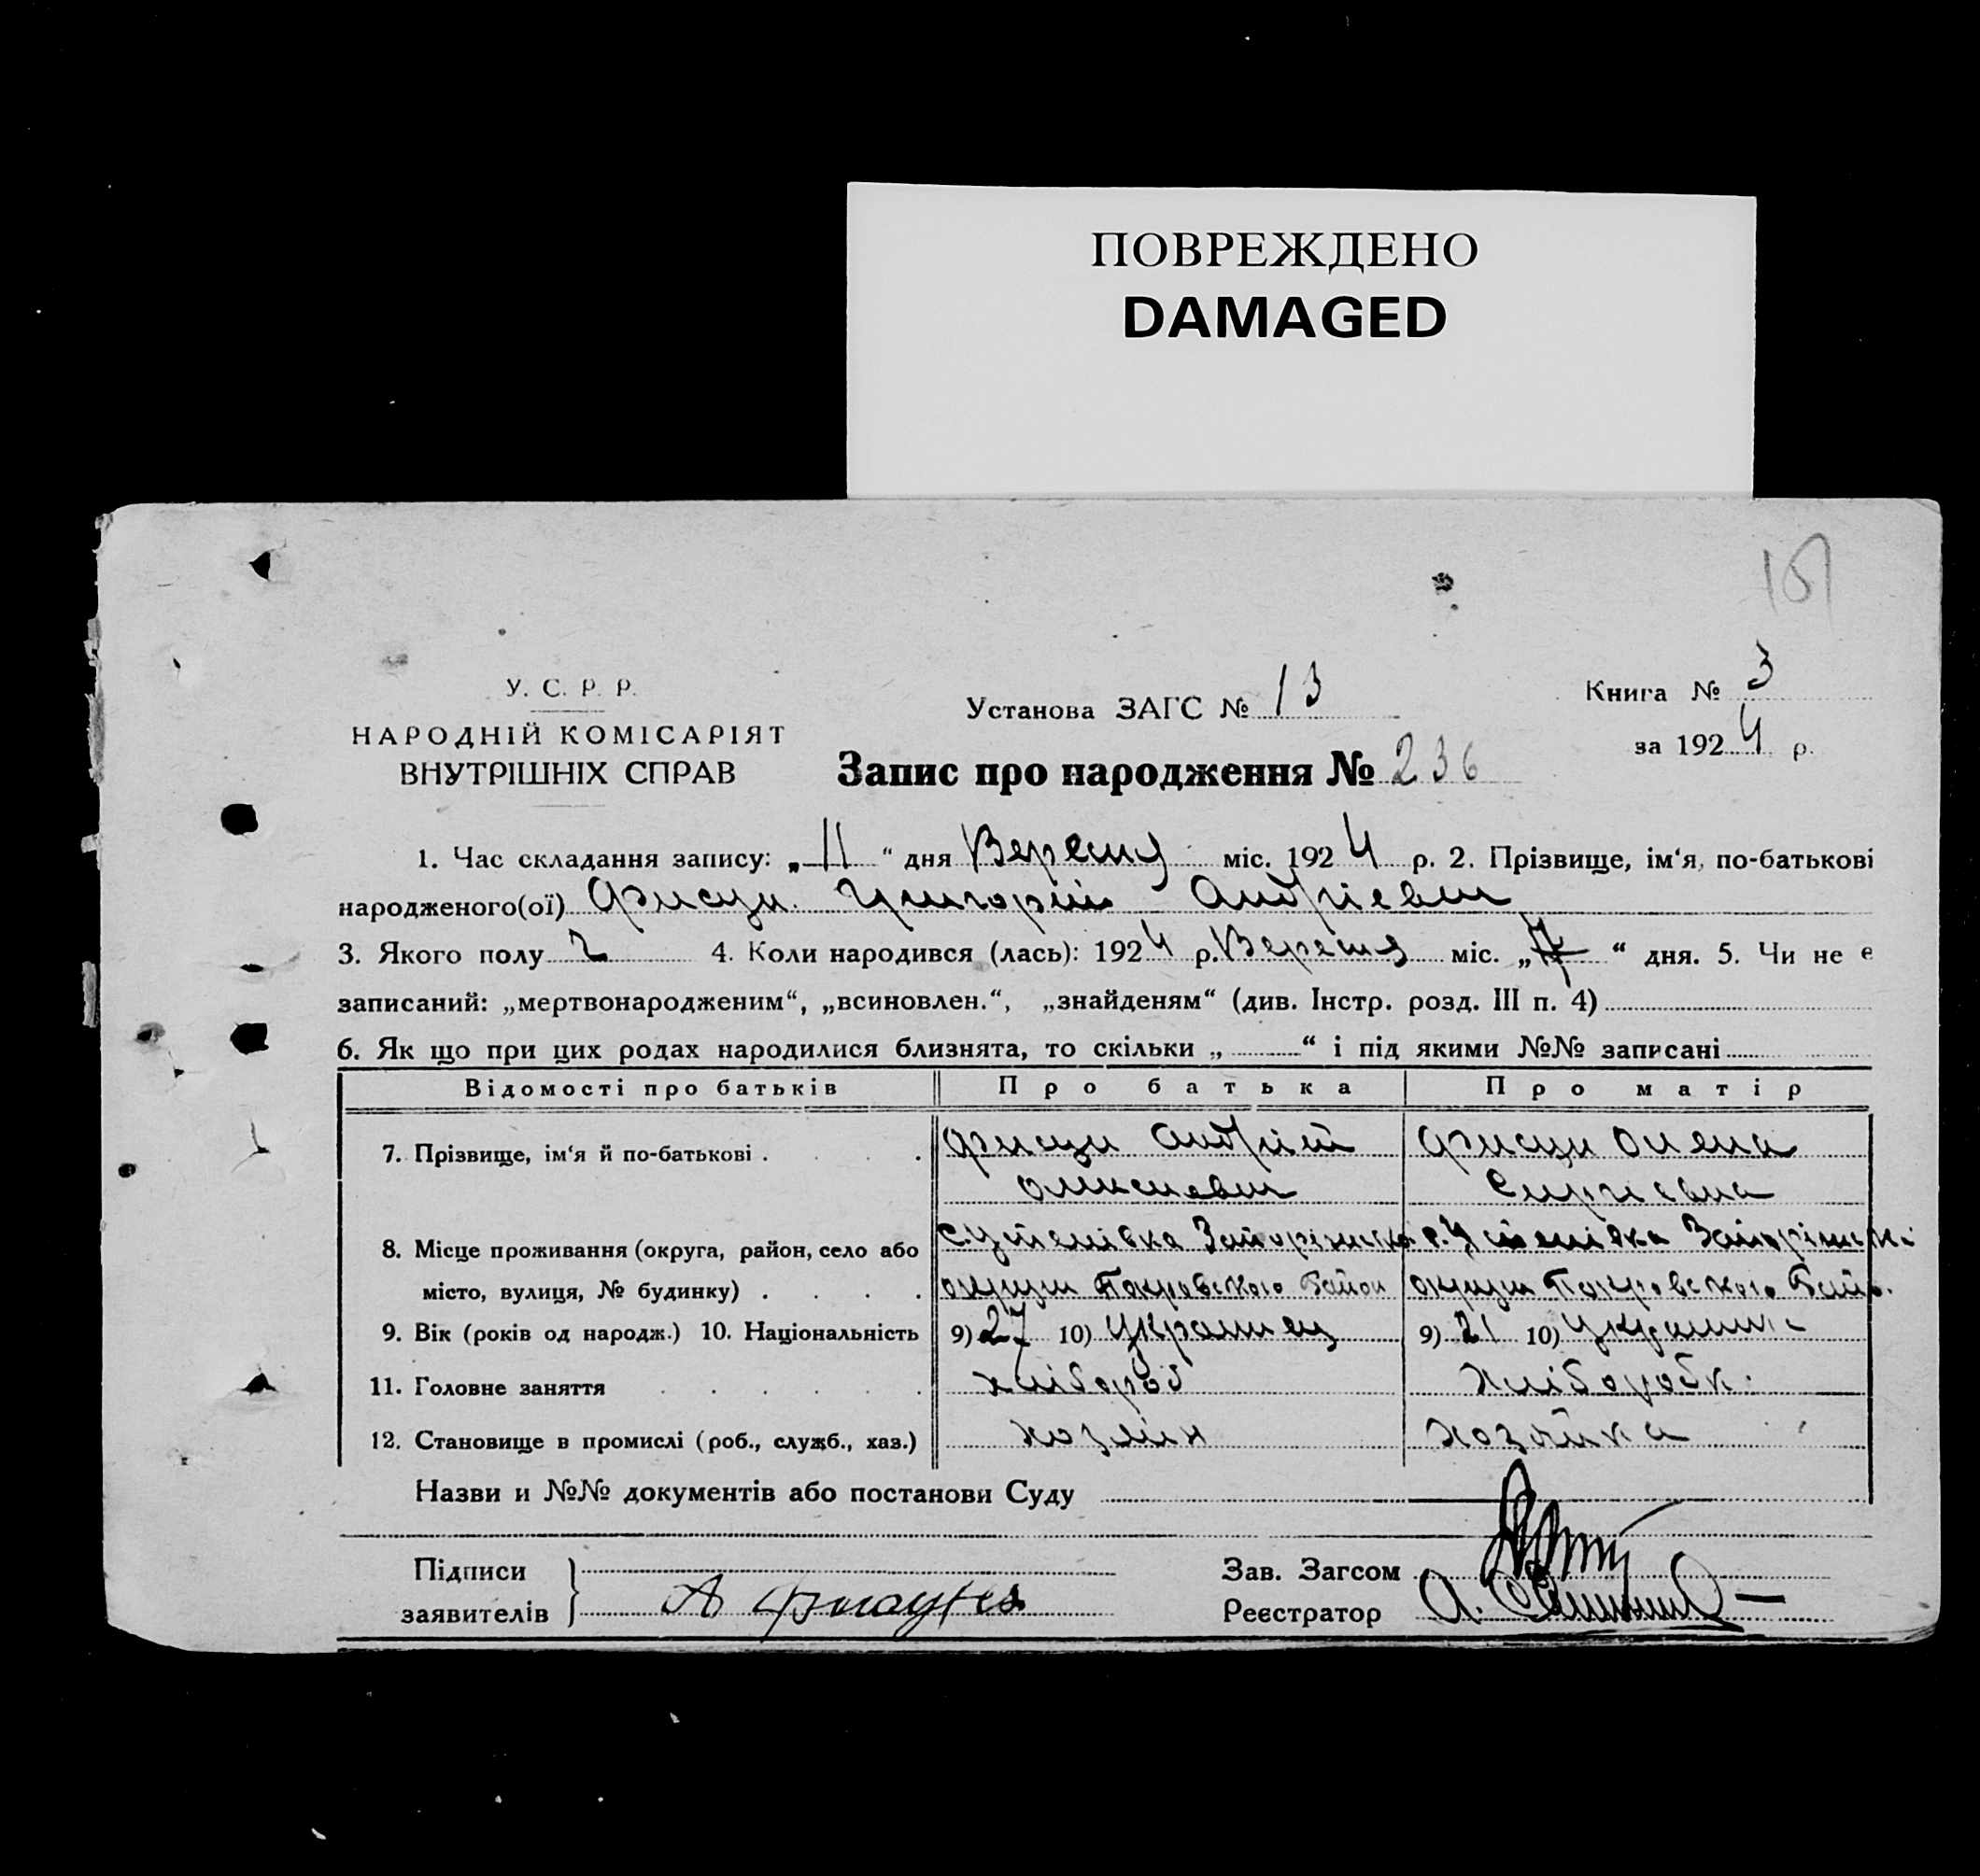 ПОВРЕЖДЕНО
DAMAGED
У. С. Р. Р.
НАРОДНІЙ КОМІСАРІЯТ
ВНУТРІШНІХ СПРАВ
Установа ЗАГС № 13
Книга № 3
за 1924 р.
Запис про народження № 236
1. Час складання запису: „11“ дня Вересня міс. 1924 р. 2. Прізвище, ім‘я, по-батькові
народженого(ої) Григорій Андрієвич
3. Якого полу ч 4. Коли народився (лась): 1924 р. Вересня міс. „7“ дня. 5. Чи не є
записаний: „мертвонародженим“, „всиновлен.“, „знайденям“ (див. Інстр. розд. III п. 4)
6. Як що при цих родах народилися близнята, то скільки „ “ і під якими №№ записані
Відомості про батьків Про батька Про матір
7. Прізвище, ім‘я й по-батькові Андрій Олена
Олексієвич Сергієвна
8. Місце проживання (округа, район, село або
місто, вулиця, № будинку) округи Покровського Район округи Покровського
9. Вік (років од народж.) 10. Національність 9) 27 10) Українец 9) 21 10)
11. Головне заняття хлібороб Хліборобк.
12. Становище в промислі (роб., служб., хаз.) хозяїн хозяйка
Назви и №№ документів або постанови Суду
Підписи
заявителів А
Зав. Загсом
Реєстратор А.